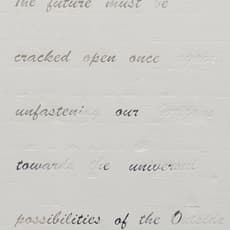 The future must be
cracked open once again
unfastening our
towards the universal
possibilities of the Outside